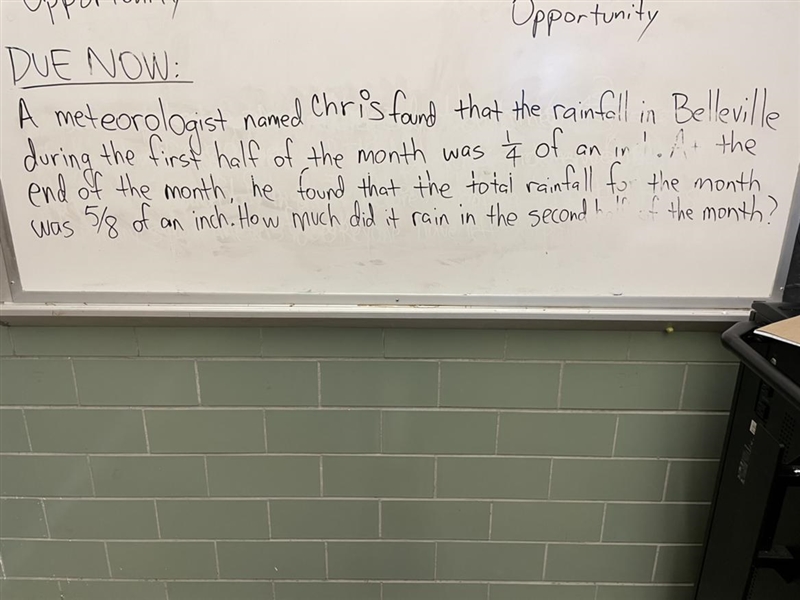 Opportunity
Opportunity
DUE NOW:
A meteorologist named Chris found that the rainfall in Belleville
during the first half of the month was 1/4 of an the
end of the month, he found that the total rainfall for the month
was 5/8 of an inch. How much did it rain in the second the month?